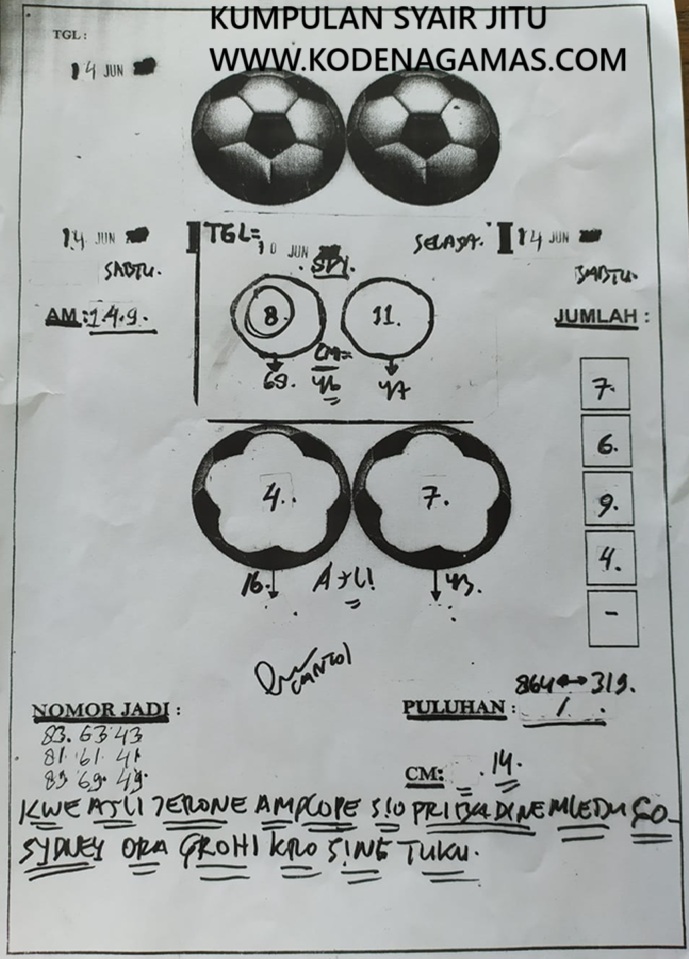 KUMPULAN SYAIR JITU
WWW.KODENAGAMAS.COM
TGL :
14 JUN
14 JUN
SABTU.
AM : 1.4.9.
TGL= 10 JUN
SELASA.
SDY.
8.
11.
CM=
69.
46
47
14 JUN
SABTU.
JUMLAH :
7.
6.
9.
4.
-
4.
7.
16.
ASLI
43.
NOMOR JADI :
83. 63 43
81. 61. 41
89 69. 49.
864 ↔ 319.
PULUHAN : 1.
CM: 14.
KWE ASLI JERONE AMPLOPE SIO PRIBADINE MLEDU GO
SYDNEY ORA GROHI KRO SING TUKU.